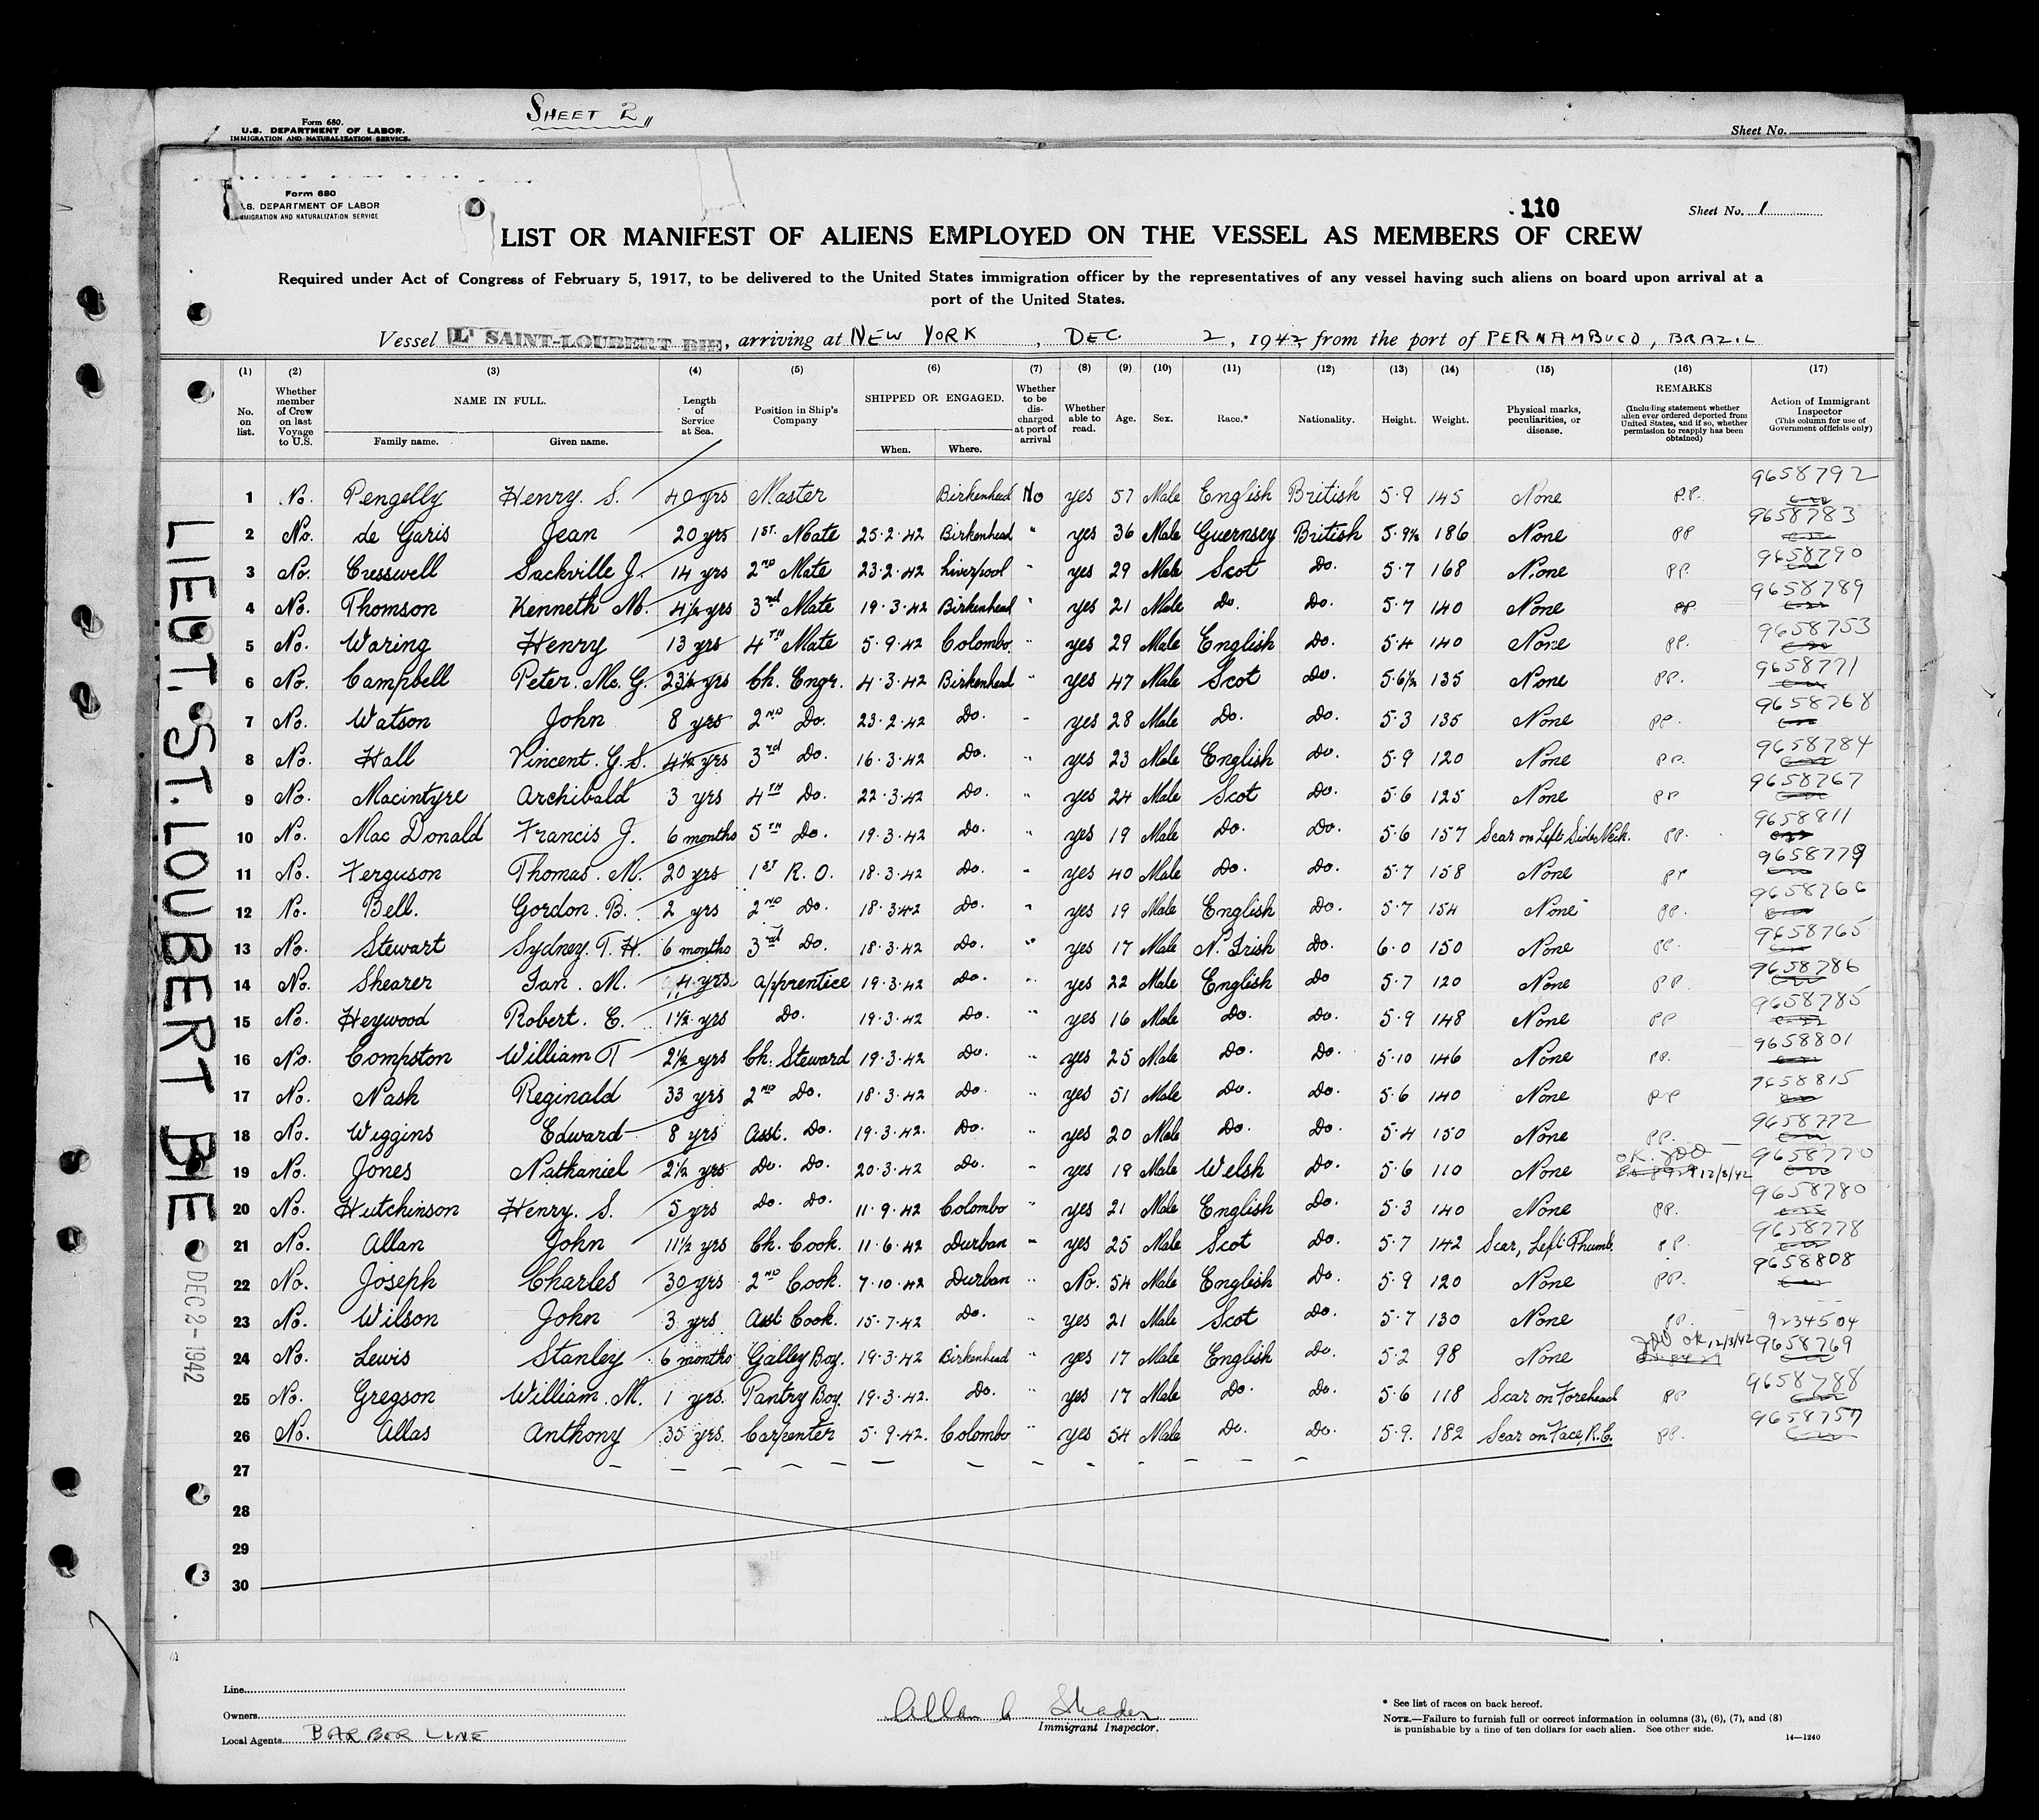 SHEET 2
Form 680.
U.S. DEPARTMENT OF LABOR.
IMMIGRATION AND NATURALIZATION SERVICE.
Sheet No.
Form 680
U.S. DEPARTMENT OF LABOR
IMMIGRATION AND NATURALIZATION SERVICE
110
Sheet No. 1
LIST OR MANIFEST OF ALIENS EMPLOYED ON THE VESSEL AS MEMBERS OF CREW
Required under Act of Congress of February 5, 1917, to be delivered to the United States immigration officer by the representatives of any vessel having such aliens on board upon arrival at a
port of the United States.
Vessel Lt SAINT-LOUBERT BIE, arriving at NEW YORK, DEC 2, 1942, from the port of PERNAMBUCO, BRAZIL
(1) (2) (3) (4) (5) (6) (7) (8) (9) (10) (11) (12) (13) (14) (15) (16) (17)
No. on list. Whether member of Crew on last Voyage to U.S. NAME IN FULL. Family name. Given name. Length of Service at Sea. Position in Ship's Company SHIPPED OR ENGAGED. When. Where. Whether to be discharged at port of arrival Whether able to read. Age. Sex. Race.* Nationality. Height. Weight. Physical marks, peculiarities, or disease. REMARKS (Including statement whether alien ever ordered deported from United States, and if so, whether permission to reapply has been obtained) Action of Immigrant Inspector (This column for use of Government officials only)
1 No. Pengelly Henry. S. 40 yrs Master Birkenhead No yes 57 Male English British 5·9 145 None P.P. 9658792
2 No. de Garis Jean 20 yrs 1ST. Mate 25·2·42 Birkenhead " yes 36 Male Guernsey British 5·9½ 186 None PP 9658783
3 No. Cresswell Sackville J. 14 yrs 2ND Mate 23·2·42 Liverpool " yes 29 Male Scot Do. 5·7 168 None PP. 9658790
4 No. Thomson Kenneth M. 4½ yrs 3rd Mate 19·3·42 Birkenhead " yes 21 Male Do. Do. 5·7 140 None PP. 9658789
5 No. Waring Henry 13 yrs 4TH Mate 5·9·42 Colombo " yes 29 Male English Do. 5·4 140 None PP. 9658753
6 No. Campbell Peter. Mc. G. 23½ yrs Ch. Engr. 4·3·42 Birkenhead " yes 47 Male Scot Do. 5·6½ 135 None PP. 9658771
7 No. Watson John 8 yrs 2ND Do. 23·2·42 Do. " yes 28 Male Do. Do. 5·3 135 None PP. 9658768
8 No. Hall Vincent. G. S. 4½ yrs 3rd Do. 16·3·42 Do. " yes 23 Male English Do. 5·9 120 None PP. 9658784
9 No. Macintyre Archibald 3 yrs 4TH Do. 22·3·42 Do. " yes 24 Male Scot Do. 5·6 125 None PP 9658767
10 No. Mac Donald Francis J. 6 months 5TH Do. 19·3·42 Do. " yes 19 Male Do. Do. 5·6 157 Scar on Left Side Neck. PP. 9658811
11 No. Ferguson Thomas. M. 20 yrs 1ST R. O. 18·3·42 Do. " yes 40 Male Do. Do. 5·7 158 None PP 9658779
12 No. Bell. Gordon. B. 2 yrs 2ND Do. 18·3·42 Do. " yes 19 Male English Do. 5·7 154 None PP. 9658766
13 No. Stewart Sydney. T. H. 6 months 3rd Do. 18·3·42 Do. " yes 17 Male N. Irish Do. 6·0 150 None PP. 9658765
14 No. Shearer Ian. M. 4 yrs apprentice 19·3·42 Do. " yes 22 Male English Do 5·7 120 None PP. 9658786
15 No. Heywood Robert. E. 1½ yrs Do. 19·3·42 Do. " yes 16 Male Do. Do. 5·9 148 None PP 9658785
16 No. Compston William T 2½ yrs Ch. Steward 19·3·42 Do. " yes 25 Male Do. Do. 5·10 146 None PP. 9658801
17 No. Nash Reginald 33 yrs 2ND Do. 18·3·42 Do. " yes 51 Male Do. Do. 5·6 140 None PP 9658815
18 No. Wiggins Edward 8 yrs Asst. Do. 19·3·42. Do. " yes 20 Male Do. Do. 5·4 150 None PP. 9658772
19 No. Jones Nathaniel 2½ yrs Do. Do. 20·3·42 Do. " yes 19 Male Welsh Do. 5·6 110 None OK. 12/3/42 9658770
20 No. Hutchinson Henry. S. 5 yrs Do. Do. 11·9·42 Colombo " yes 21 Male English Do. 5·3 140 None PP. 9658780
21 No. Allan John 11½ yrs Ch. Cook. 11·6·42 Durban " yes 25 Male Scot Do. 5·7 142 Scar, Left Thumb. PP. 9658778
22 No. Joseph Charles 30 yrs 2ND Cook. 7·10·42 Durban " No. 54 Male English Do. 5·9 120 None PP. 9658808
23 No. Wilson John 3 yrs Asst Cook. 15·7·42 Do. " yes 21 Male Scot Do. 5·7 130 None PP. 9234504
24 No. Lewis Stanley 6 months Galley Boy. 19·3·42 Birkenhead " yes 17 Male English Do. 5·2 98 None OK 12/3/42 9658769
25 No. Gregson William. M. 1 yrs. Pantry Boy. 19·3·42. Do. " yes 17 Male Do. Do. 5·6 118 Scar on Forehead PP 9658788
26 No. Allas Anthony 35 yrs. Carpenter 5·9·42. Colombo " yes 54 Male Do. Do. 5·9. 182 Scar on Face, R.C. PP. 9658757
27
28
29
30
LIEUT. ST. LOUBERT BIE
DEC 2-1942
3
Line
Owners
Local Agents BARBER LINE
Immigrant Inspector.
* See list of races on back hereof.
NOTE.—Failure to furnish full or correct information in columns (3), (6), (7), and (8)
is punishable by a line of ten dollars for each alien. See other side.
14—1240